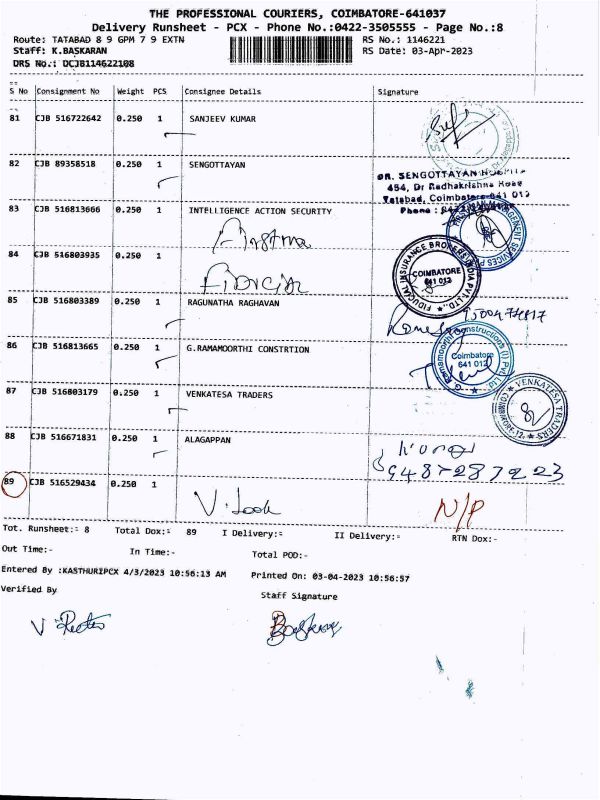 THE PROFESSIONAL COURIERS, COIMBATORE-641037
Delivery Runsheet - PCX - Phone No.:0422-3505555 - Page No.:8
Route: TATABAD 8 9 GPM 7 9 EXTN RS No.: 1146221
Staff: K.BASKARAN RS Date: 03-Apr-2023
DRS No.: DCJB114622108
S No Consignment No Weight PCS Consignee Details Signature
81 CJB 516722642 0.250 1 SANJEEV KUMAR
82 CJB 89358518 0.250 1 SENGOTTAYAN
DR. SENGOTTAYAN
454, Dr Radhakrishna Road
Tatabad, Coimbatore-641 012
Phone :
83 CJB 516813666 0.250 1 INTELLIGENCE ACTION SECURITY
84 CJB 516803935 0.250 1
FIDUCIAL INSURANCE BROKERS INDIA PVT.LTD.
COIMBATORE
641 012
85 CJB 516803389 0.250 1 RAGUNATHA RAGHAVAN
86 CJB 516813665 0.250 1 G.RAMAMOORTHI CONSTRTION
G. Ramamoorthi Constructions (I) Pvt. Ltd.
Coimbatore
641 012
87 CJB 516803179 0.250 1 VENKATESA TRADERS
VENKATESA TRADERS
88 CJB 516671831 0.250 1 ALAGAPPAN
89 CJB 516529434 0.250 1
N/P
Tot. Runsheet:- 8 Total Dox:- 89 I Delivery:- II Delivery:- RTN Dox:-
Out Time:- In Time:- Total POD:-
Entered By :KASTHURIPCX 4/3/2023 10:56:13 AM Printed On: 03-04-2023 10:56:57
Verified By Staff Signature